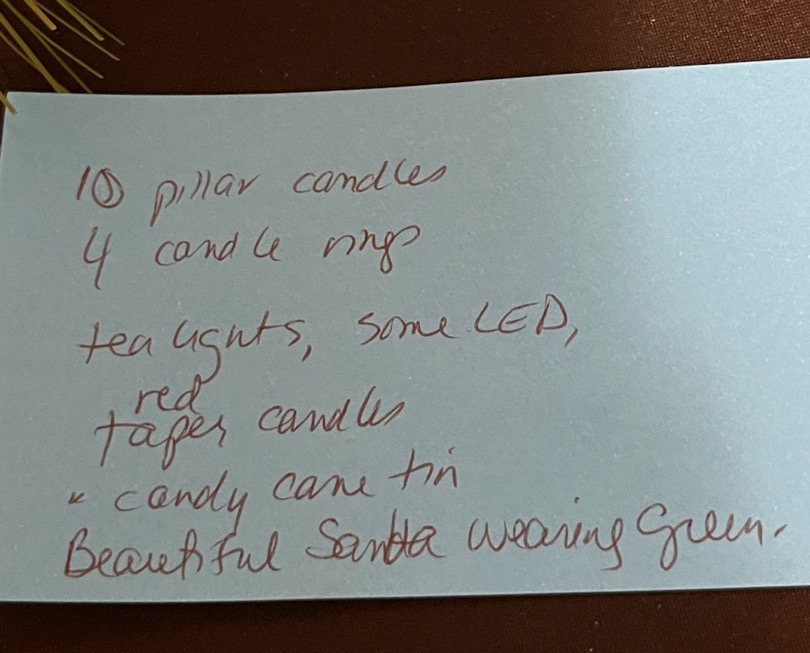 10 pillar candles
4 candle rings
tea lights, some LED,
red
taper candles
* candy cane tin
Beautiful Santa wearing Green.